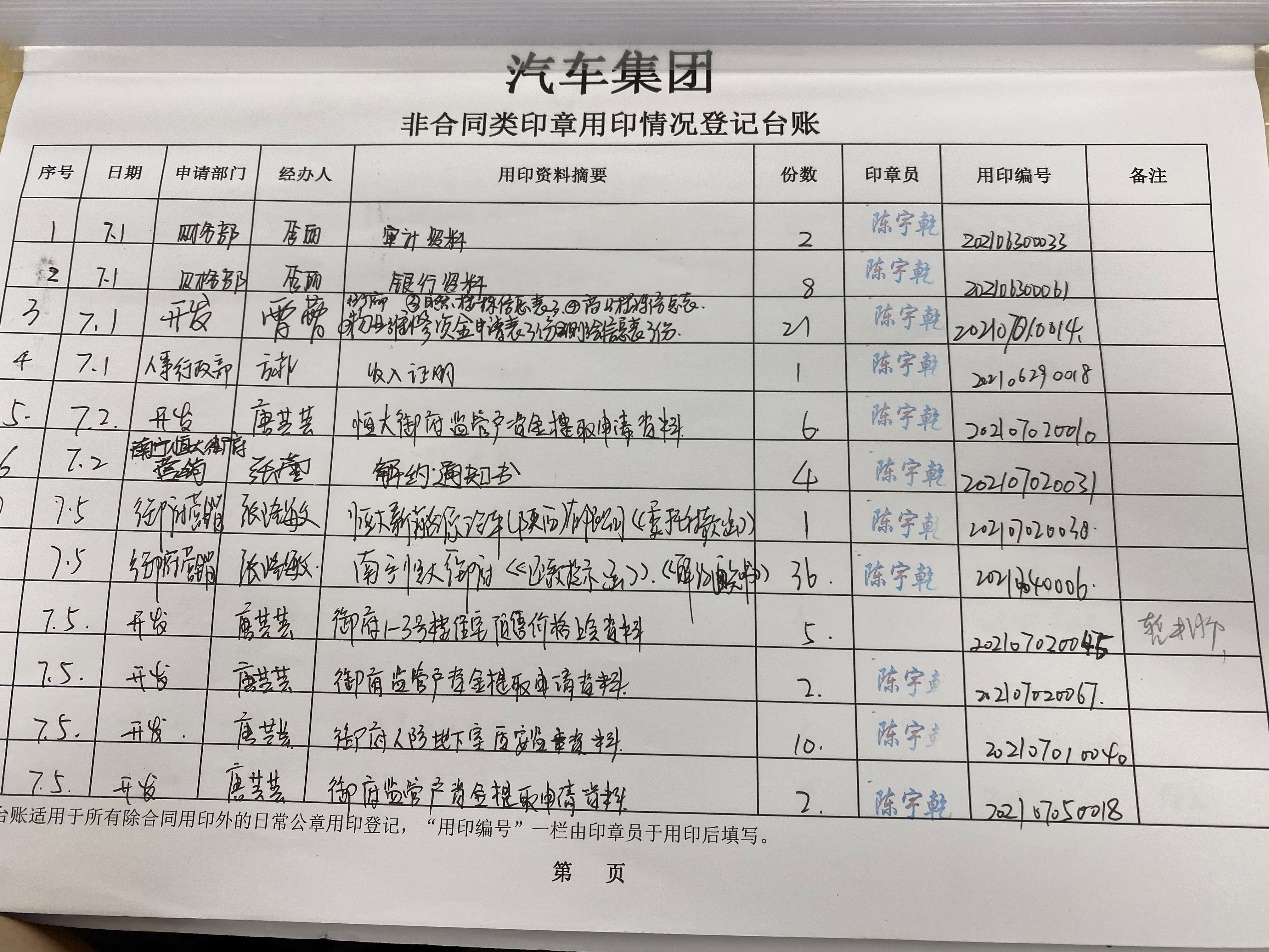 汽车集团
非合同类印章用印情况登记台账
序号 日期 申请部门 经办人 用印资料摘要 份数 印章员 用印编号 备注
1 7.1 财务部 审计资料 2 陈宇乾 202106300033
2 7.1 财务部 银行资料 8 陈宇乾 202106300061
3 7.1 开发 21 陈宇乾 202107010014.
4 7.1 人事行政部 收入证明 1 陈宇乾 202106290018
5. 7.2. 开发 唐芸芸 恒大御府监管户资金提取申请资料 6 陈宇乾 202107020010
6 7.2 南宁恒大御府营销 解约通知书 4 陈宇乾 202107020031
7.5 御府营销 张浩敏 恒大新能源汽车(陕西)有限公司 1 陈宇乾 202107020038
7.5 御府营销 张浩敏 南宁恒大御府 36. 陈宇乾
7.5. 开发 唐芸芸 御府1-3号楼住宅预售价格上会资料 5. 202107020045
7.5. 开发 唐芸芸 御府监管户资金提取申请资料 2. 陈宇乾 202107020067.
7.5. 开发 唐芸芸 御府人防地下室质安监 资料 10. 陈宇乾 202107010040
7.5. 开发 唐芸芸 御府监管户资金提取申请资料 2. 陈宇乾 202107050018
台账适用于所有除合同用印外的日常公章用印登记，“用印编号”一栏由印章员于用印后填写。
第 页